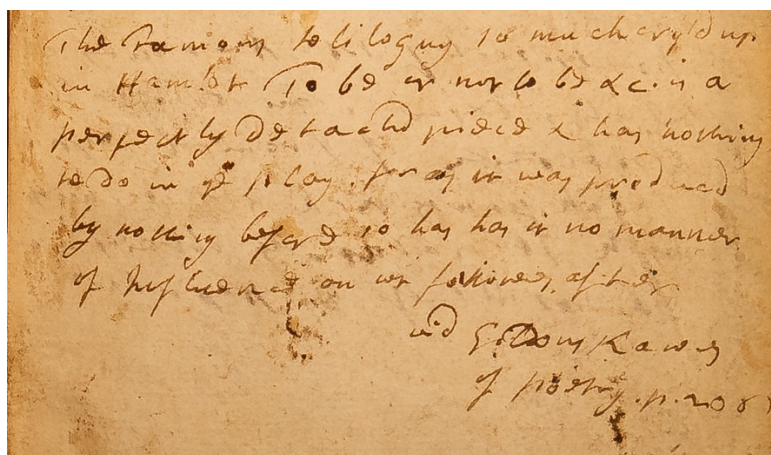 The Famous soliloquy so much cry'd up
in Hamlet To be or not to be &c. is a
perfectly detach'd piece & has nothing
to do in ye play. for as it was produced
by nothing before so has has it no manner
of Influence on wt follows after
vid Gildons Laws
of poetry. p. 206